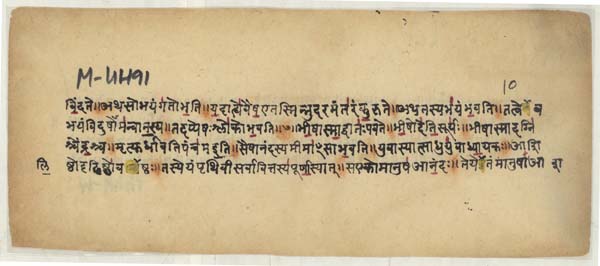 M-4491
10
विंदते॥अथसोभयंगतोभवति॥यदाह्येवैषएतस्मिन्नुदरमंतरंकुरुते॥अथतस्यभयंभवति॥तत्वेव
भयंविदुषोमन्वानस्य॥तदप्येषःश्लोकोभवति॥भीषास्माद्वातःपवते॥भीषोदेतिसूर्यः॥भीषास्मादग्नि
श्चेंद्रश्च॥मृत्युर्धावतिपंचमइति॥सैषानंदस्यमीमाꣳसाभवति॥युवास्यात्साधुयुवाध्यायकः॥आशि
ष्ठोदृढिष्ठोबलिष्ठः॥तस्येयंपृथिवीसर्वावित्तस्यपूर्णास्यात्॥सएकोमानुषआनंदः॥तेयेशतंमानुषाआनंदा